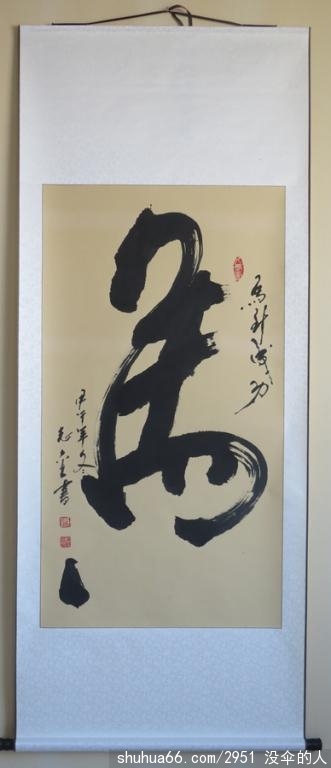 馬到成功
馬
甲午年冬
書
shuhua66.com/2951 没伞的人